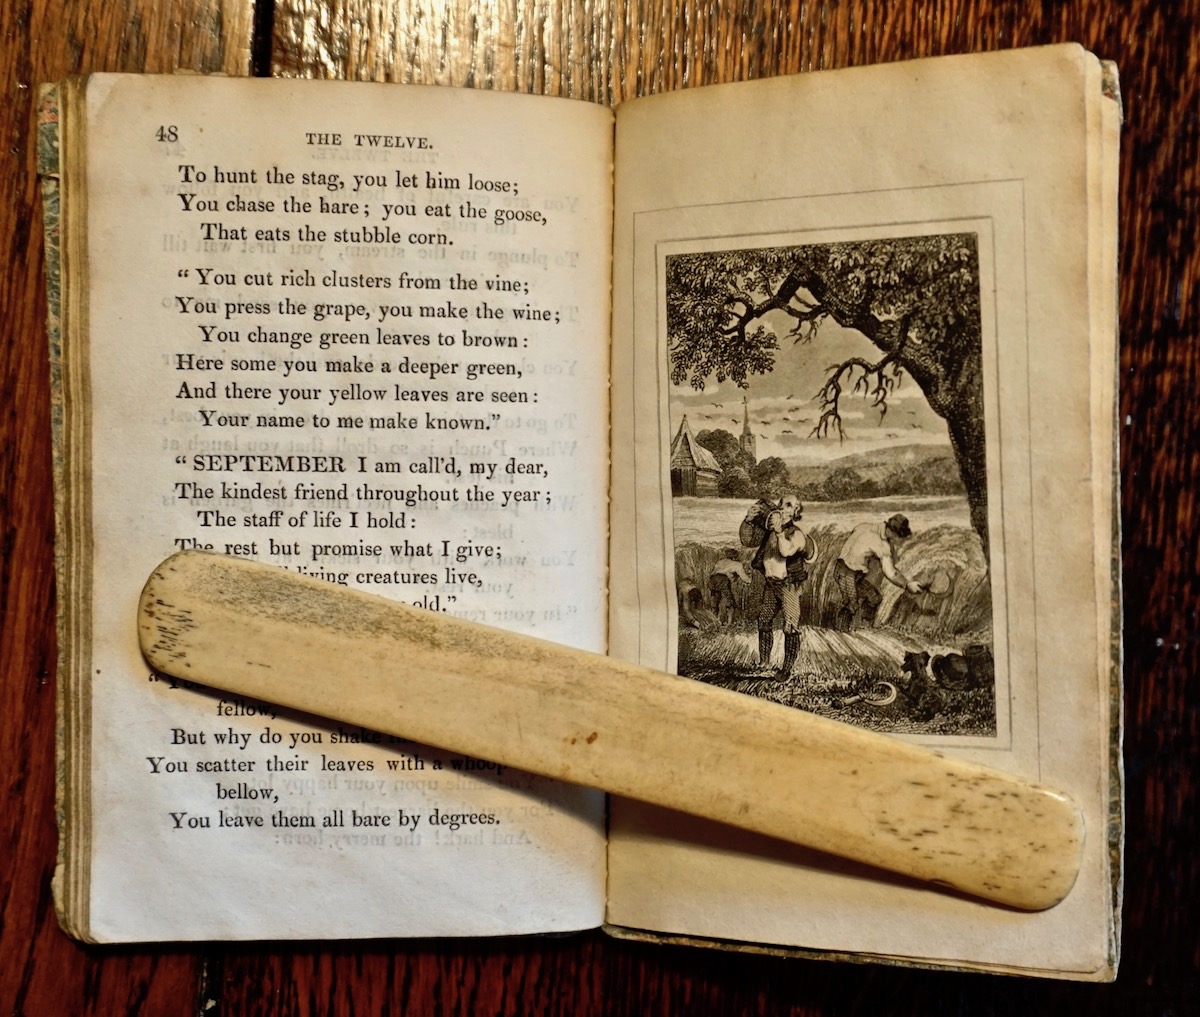 48
THE TWELVE.
To hunt the stag, you let him loose;
You chase the hare; you eat the goose,
That eats the stubble corn.
“ You cut rich clusters from the vine;
You press the grape, you make the wine;
You change green leaves to brown:
Here some you make a deeper green,
And there your yellow leaves are seen:
Your name to me make known.”
“ SEPTEMBER I am call'd, my dear,
The kindest friend throughout the year;
The staff of life I hold:
The rest but promise what I give;
living creatures live,
old.”
fellow,
But why do you shake
You scatter their leaves with a whoop
bellow,
You leave them all bare by degrees.